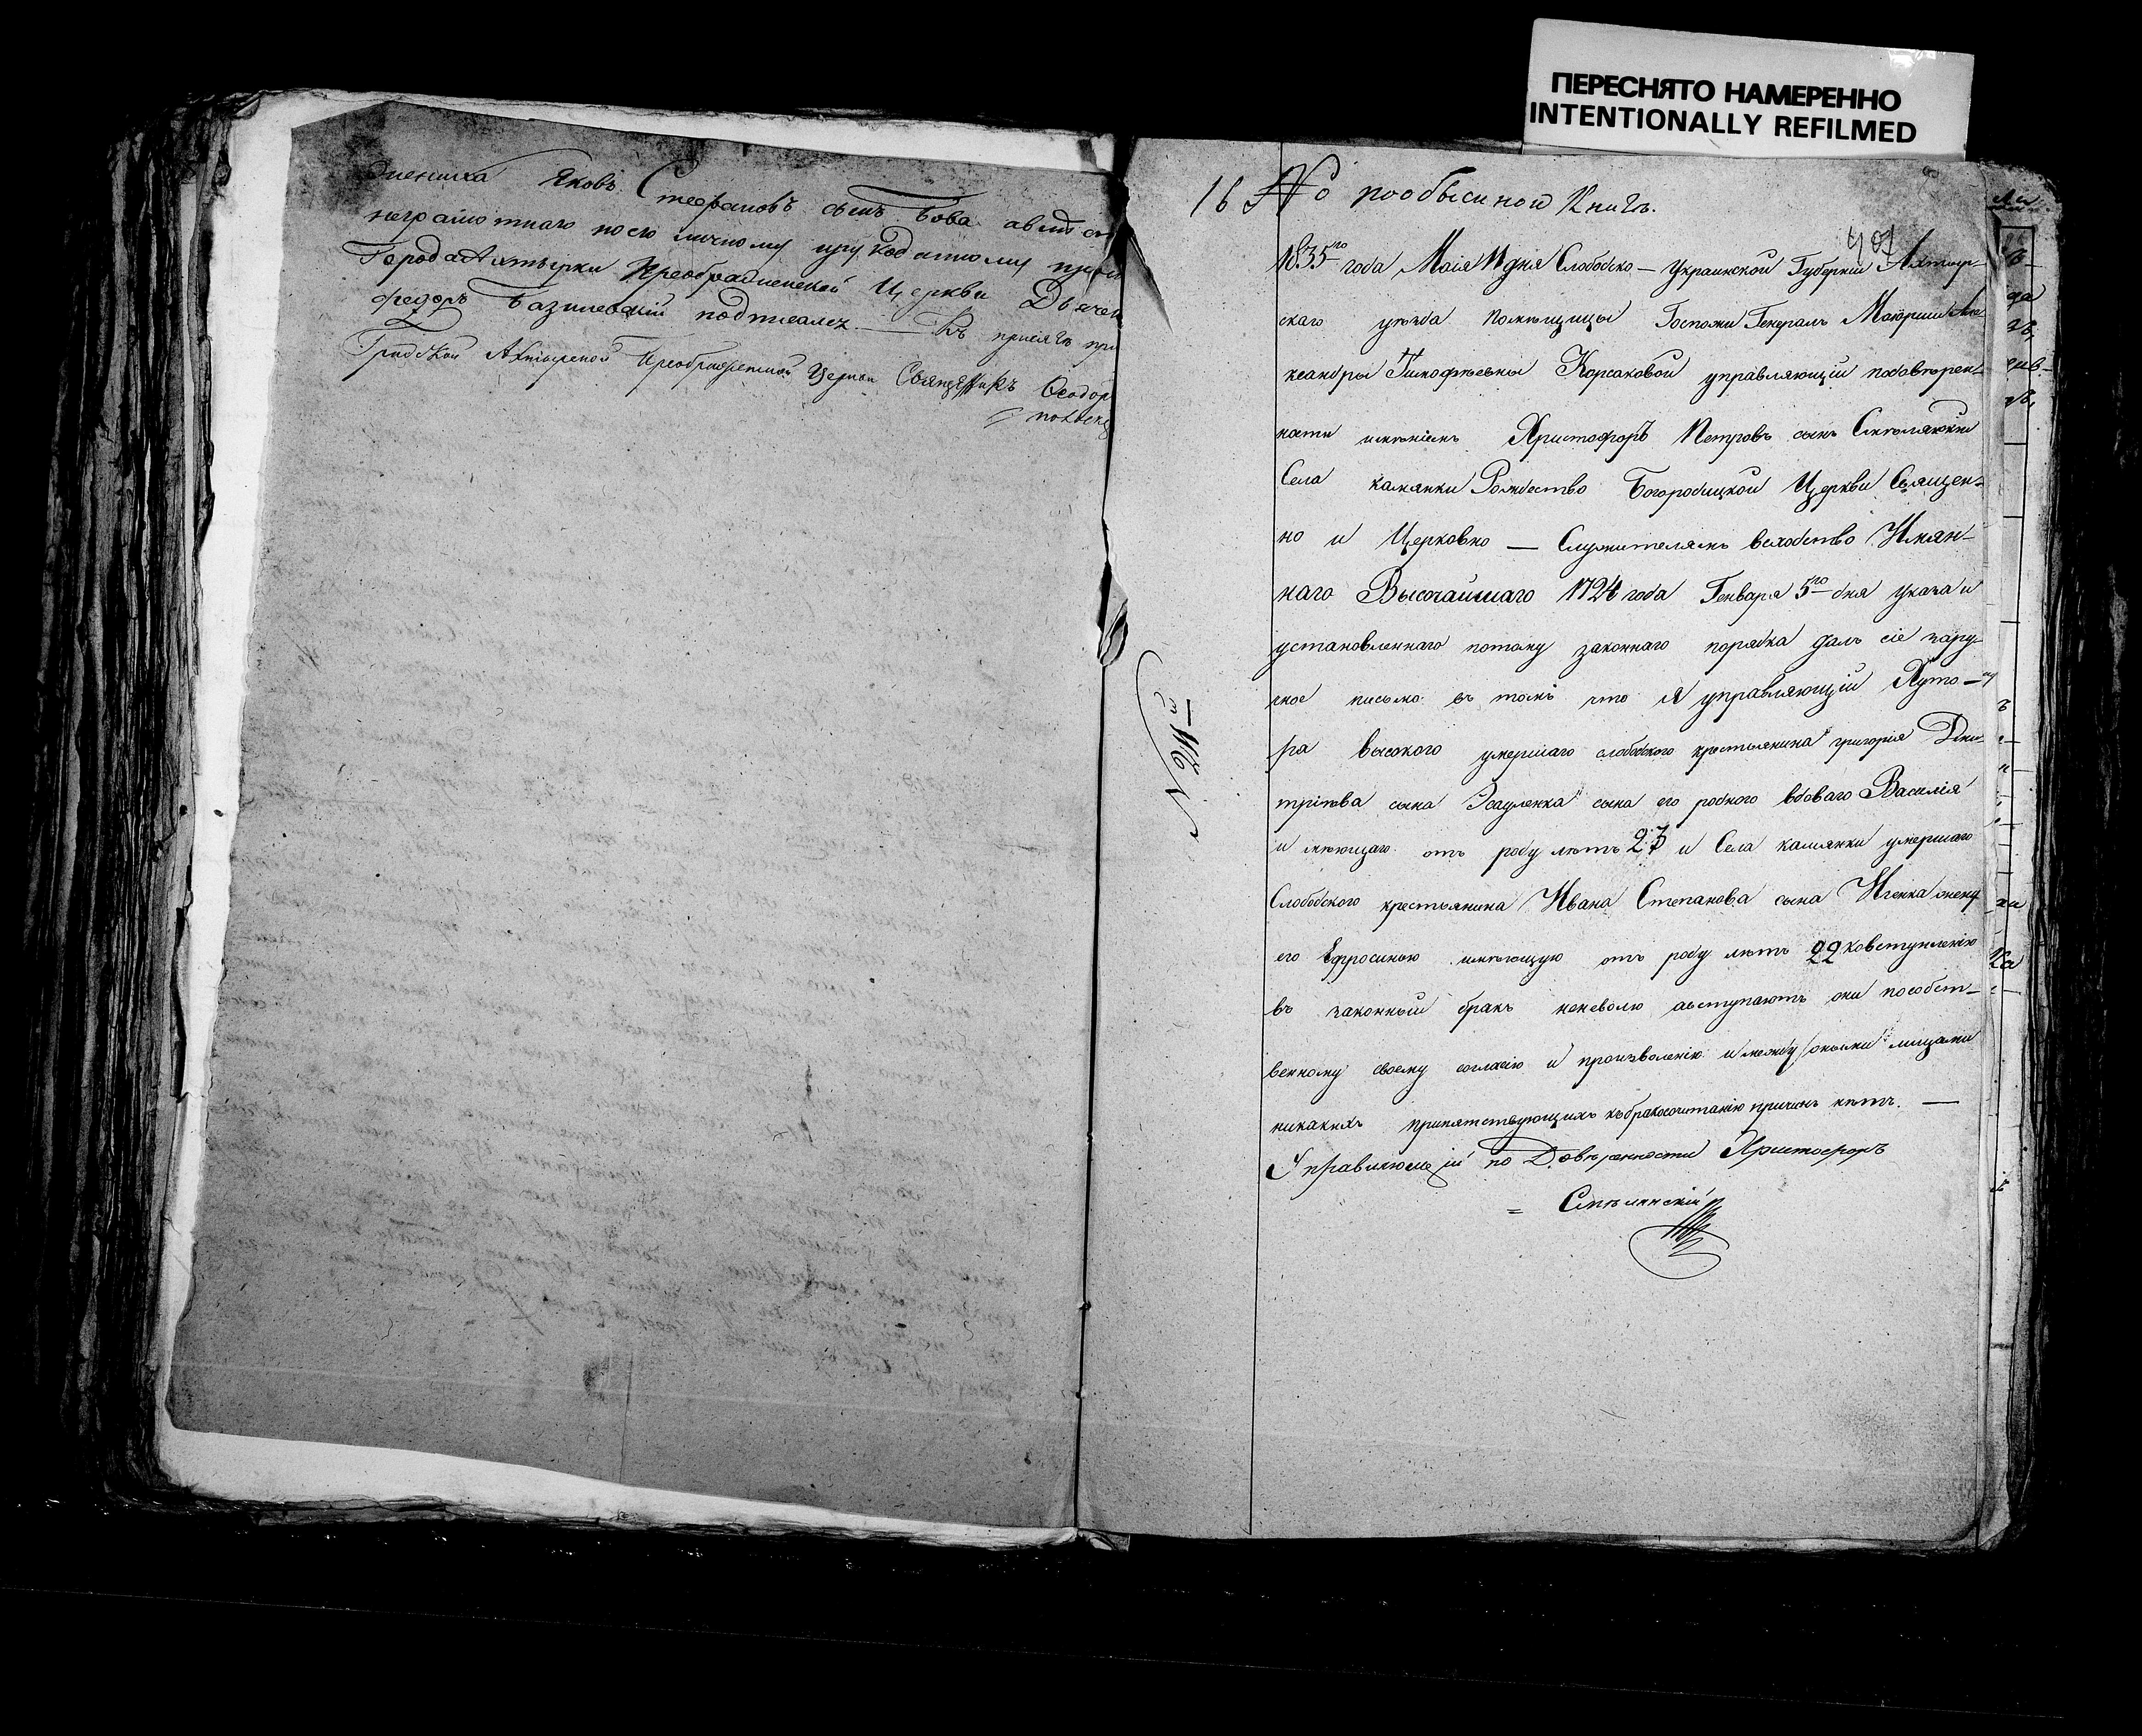 ПЕРЕСНЯТО НАМЕРЕННО
INTENTIONALLY REFILMED
Яковъ Стефановъ сынъ Бова
неграмотнаго посю личному
Города Ахтырки Преображенской Церкви Дьячек
федоръ Базилевскій подписалсz — Къ присягѣ при
Градской Ахтырской Преображенской Церкви Священникъ Ѳеодор
16 № пообыскной Книгѣ.
401
1835го года Маія 11 дня Слободско — Украинской Губерніи Ахтыр-
скаго уѣзда помѣщицы Госпожи Генералъ Маіорши Але
ксандры Тимофѣевны Корсаковой управляющій подовѣрен-
ности имѣніемъ Христофоръ Петровъ сынъ
Села каменки Рождество Богородицкой Церкви Священ-
но и Церковно — Служителямъ вслѣдство Имян-
наго Высочайшаго 1724 года Генваря 5го дня указа и
установленнаго потому законнаго порядка далъ сіе зару-
ное письмо въ томъ что я управляющій Хуто-
ра высокого умершаго слободского крестьянина григорія Дми-
тріева сына Эсауленка сына его родного вдоваго Василія
и мѣющаго отъ роду лѣтъ 23 и Села камянки умершаго
Слободского крестьянина Ивана Степанова сына жену
его Ефросинью имѣющую отъ роду лѣтъ 22 ковступленію
въ законный бракъ неневолю авступаютъ они пособст-
венному своему согласію и произволенію и между оными лицами
никакихъ припятствующихъ къбракосочитанію причинъ нѣтъ. —
Управляющій по Довѣренности Христофоръ
Смѣлянскій
№ 116